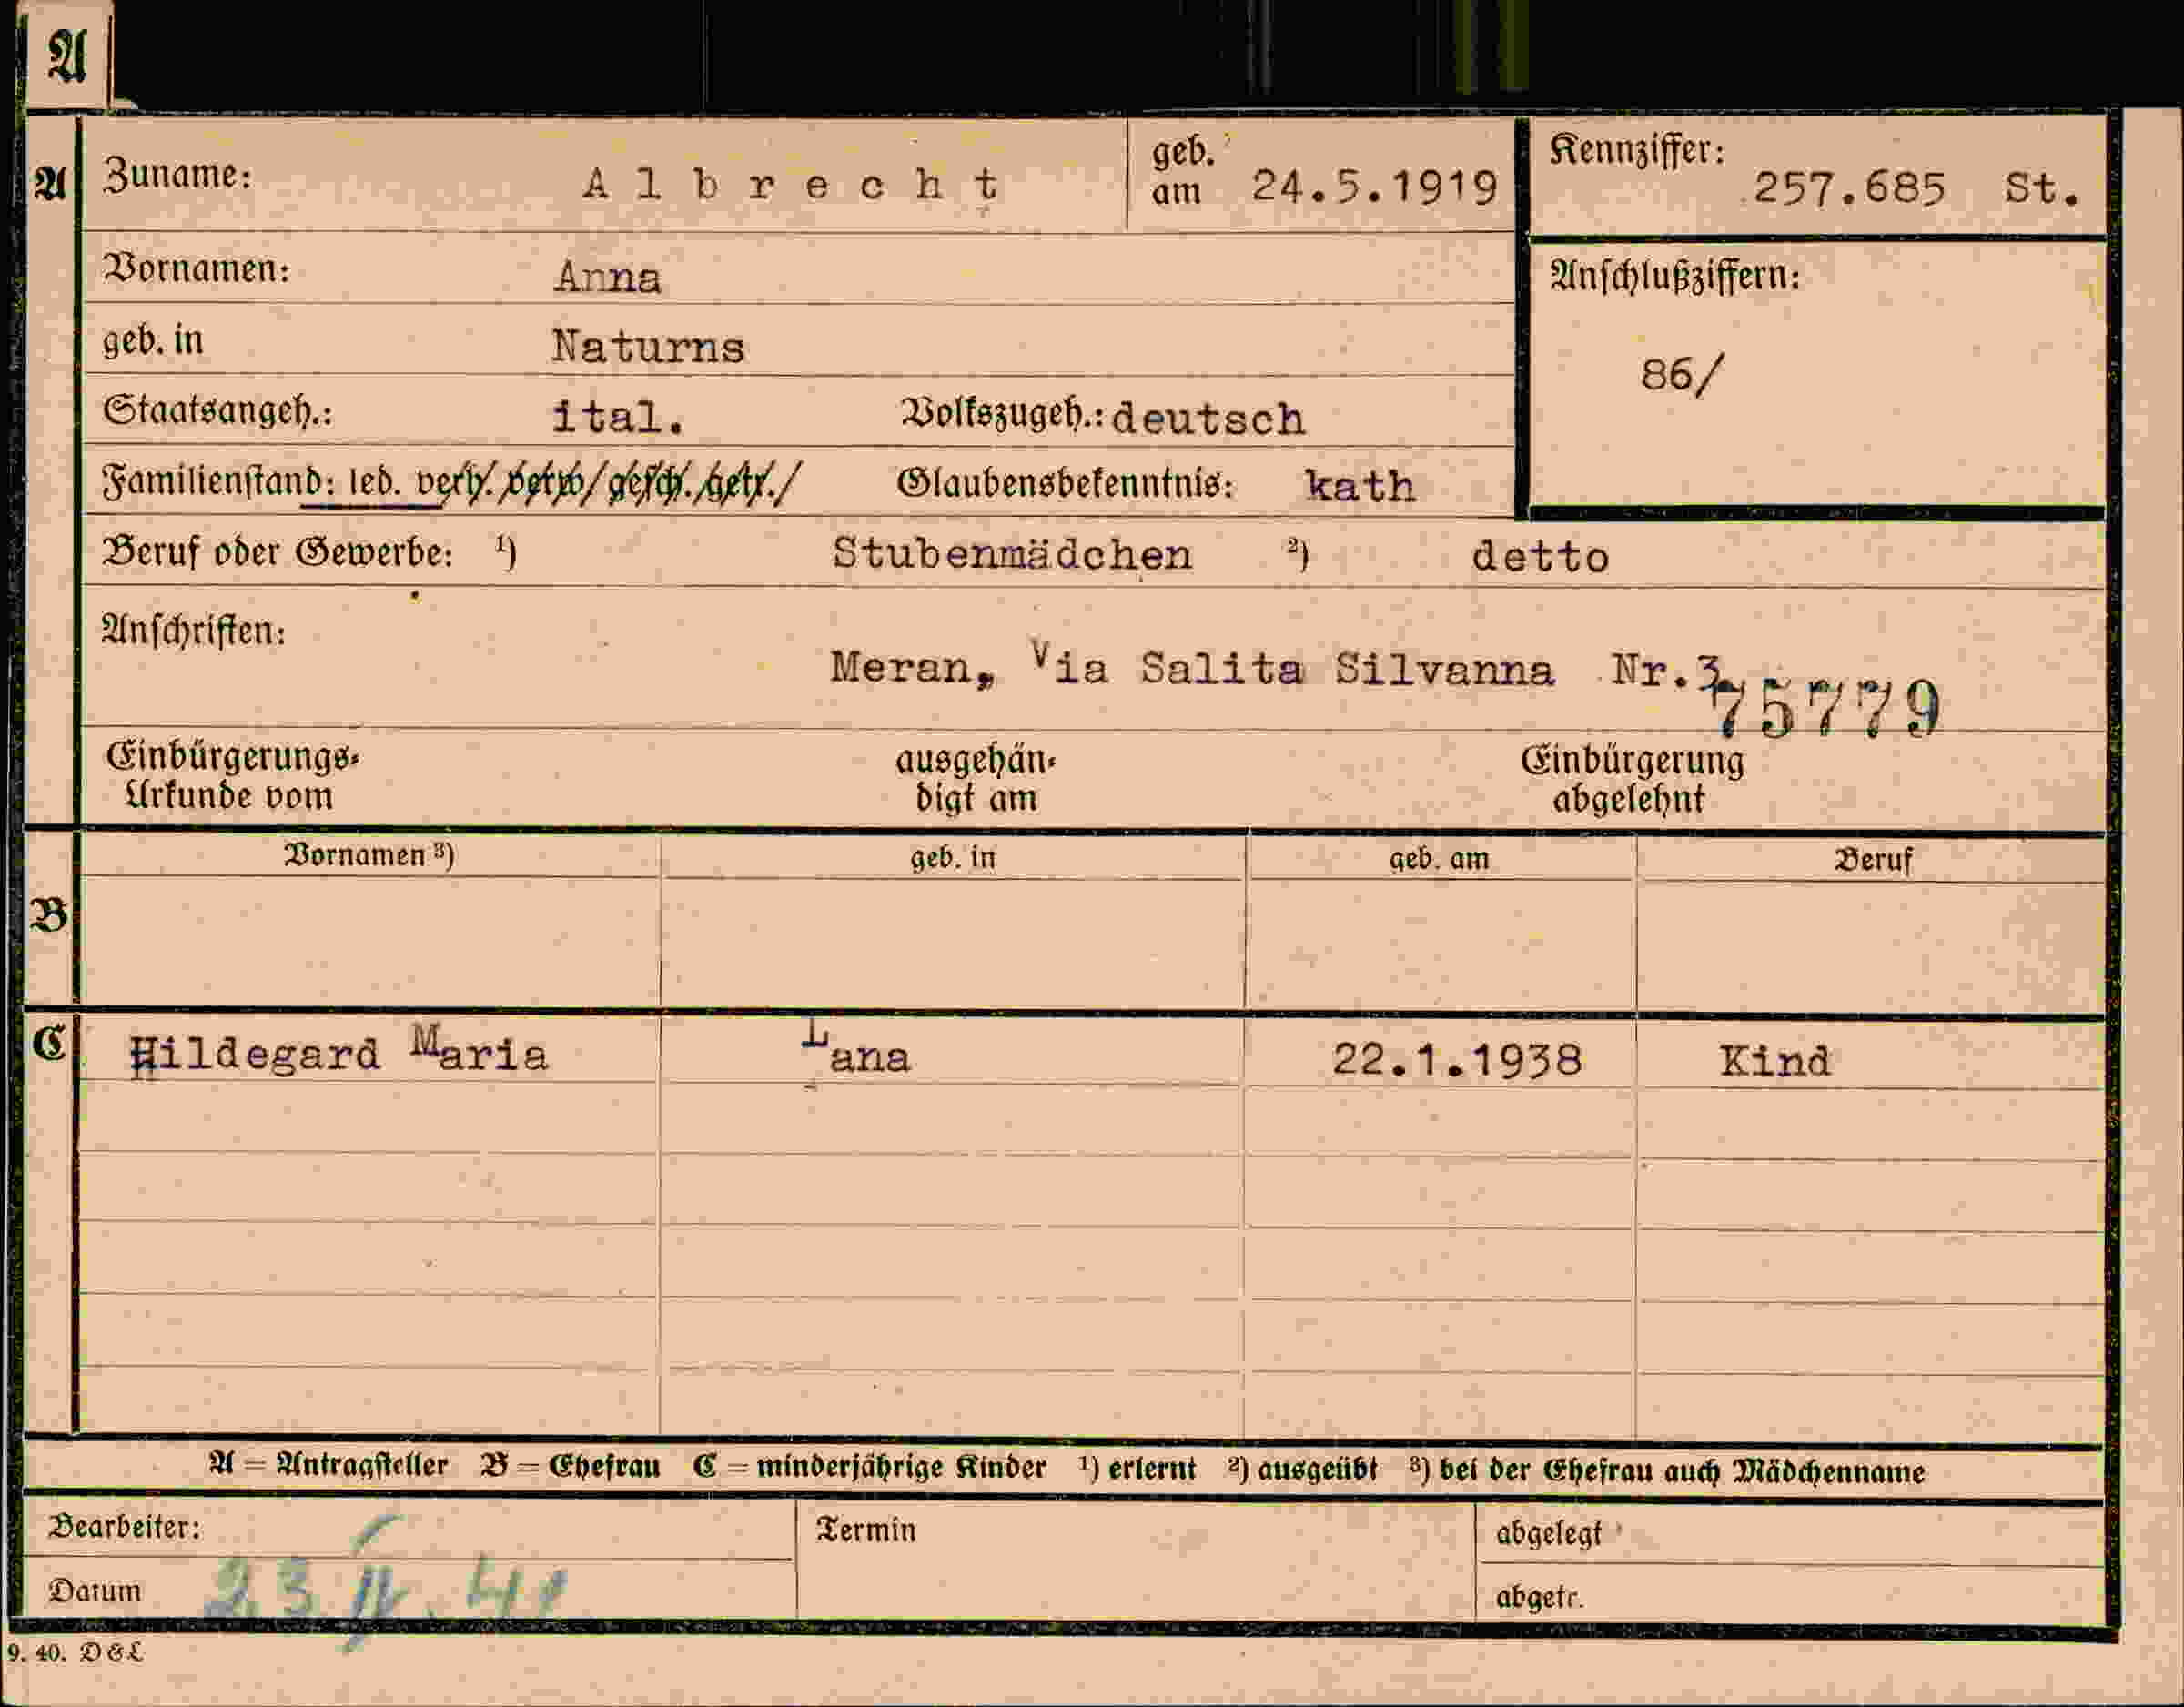 A
A Zuname: Albrecht geb. am 24.5.1919 Kennziffer: 257.685 St.
Vornamen: Anna Anschlußziffern:
geb. in Naturns 86/
Staatsangeh.: ital. Volkszugeh.: deutsch
Familienstand: led. verh. verw. gesch. getr. Glaubensbekenntnis: kath
Beruf oder Gewerbe: ¹) Stubenmädchen ²) detto
Anschriften:
Meran, Via Salita Silvanna Nr.3
75779
Einbürgerungs-Urkunde vom ausgehän-digt am Einbürgerung abgelehnt
Vornamen ³) geb. in geb. am Beruf
B
C Hildegard Maria Lana 22.1.1938 Kind
A = Antragsteller B = Ehefrau C = minderjährige Kinder ¹) erlernt ²) ausgeübt ³) bei der Ehefrau auch Mädchenname
Bearbeiter: Termin abgelegt
Datum 23 abgetr.
9. 40. D&L